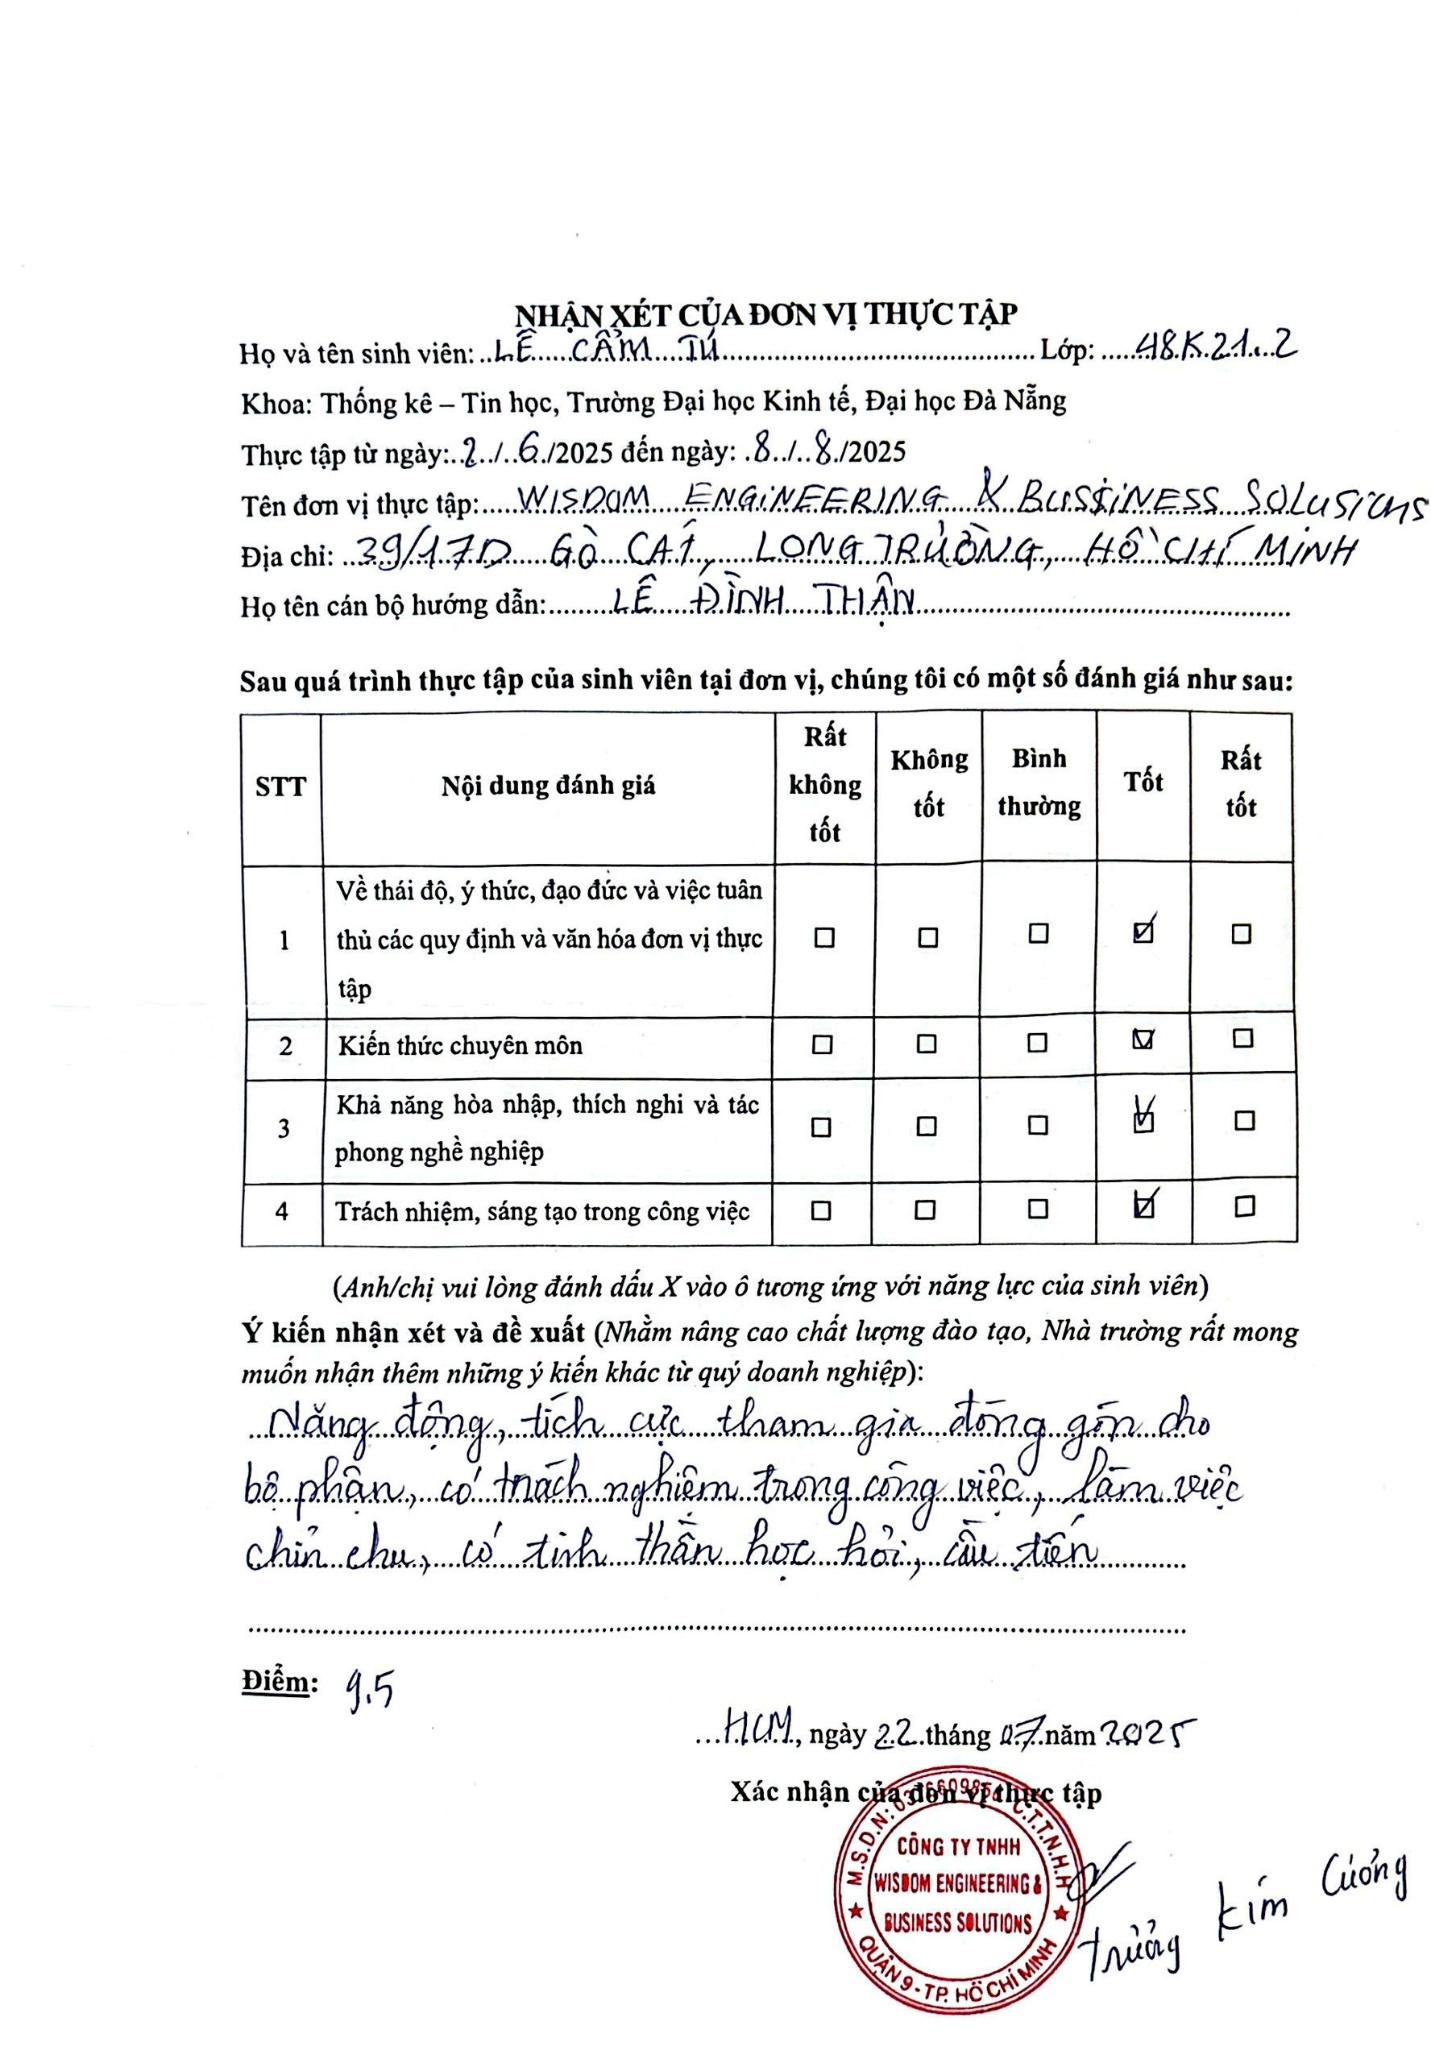 NHẬN XÉT CỦA ĐƠN VỊ THỰC TẬP
Họ và tên sinh viên: LÊ CẨM TÚ Lớp: 48K21.2
Khoa: Thống kê – Tin học, Trường Đại học Kinh tế, Đại học Đà Nẵng
Thực tập từ ngày: 2/6/2025 đến ngày: 8/8/2025
Tên đơn vị thực tập: WISDOM ENGINEERING & BUSSINESS SOLUSIONS
Địa chỉ: 39/17D GÒ CÁT, LONG TRƯỜNG, HỒ CHÍ MINH
Họ tên cán bộ hướng dẫn: LÊ ĐÌNH THẬN
Sau quá trình thực tập của sinh viên tại đơn vị, chúng tôi có một số đánh giá như sau:
STT Nội dung đánh giá Rất không tốt Không tốt Bình thường Tốt Rất tốt
1 Về thái độ, ý thức, đạo đức và việc tuân
thủ các quy định và văn hóa đơn vị thực
tập ☐ ☐ ☐ ☑ ☐
2 Kiến thức chuyên môn ☐ ☐ ☐ ☑ ☐
3 Khả năng hòa nhập, thích nghi và tác
phong nghề nghiệp ☐ ☐ ☐ ☑ ☐
4 Trách nhiệm, sáng tạo trong công việc ☐ ☐ ☐ ☑ ☐
(Anh/chị vui lòng đánh dấu X vào ô tương ứng với năng lực của sinh viên)
Ý kiến nhận xét và đề xuất (Nhằm nâng cao chất lượng đào tạo, Nhà trường rất mong
muốn nhận thêm những ý kiến khác từ quý doanh nghiệp):
Năng động, tích cực tham gia đóng góp cho
bộ phận, có trách nghiệm trong công việc, làm việc
chỉn chu, có tinh thần học hỏi, cầu tiến
Điểm: 9.5
HCM, ngày 22 tháng 07 năm 2025
Xác nhận của đơn vị thực tập
M.S.D.N: C.T.T.N.H.H
CÔNG TY TNHH
WISDOM ENGINEERING &
BUSINESS SOLUTIONS
QUẬN 9 - TP. HỒ CHÍ MINH
Trương Kim Cương